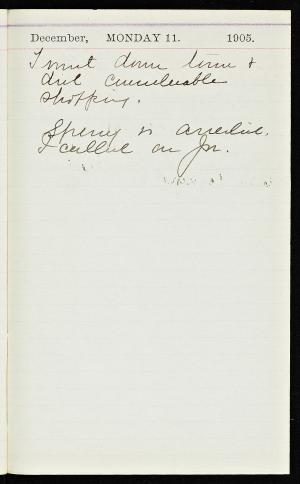 December, MONDAY 11. 1905.
I went down town &
did considerable
shopping.
Sperry is
I called on Jn.